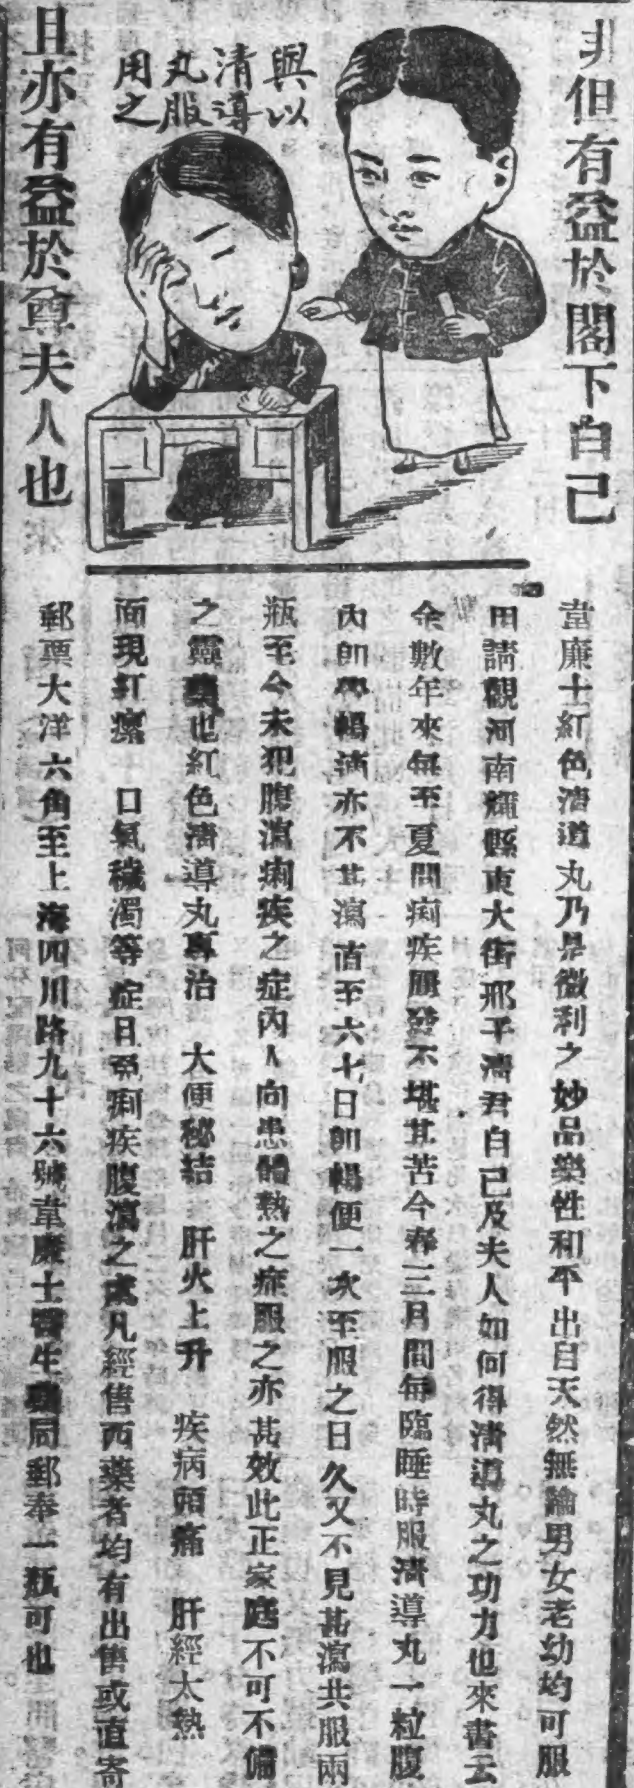 非但有益於閣下自己
與以
清導
丸服
用之
且亦有益於尊夫人也
韋廉士紅色清導丸乃是微利之妙品藥性和平出自天然無論男女老幼均可服
用請觀河南輝縣東大街邢子濤君自己及夫人如何得清導丸之功力也來書云
余數年來每至夏間痢疾屢發不堪其苦今春三月間每臨睡時服清導丸一粒腹
內即覺暢適亦不甚瀉直至六七日即暢便一次至服之日久又不見甚瀉共服兩
瓶至今未犯腹瀉痢疾之症內人向患體熱之症服之亦甚效此正家庭不可不備
之靈藥也紅色清導丸專治 大便秘結 肝火上升 疾病頭痛 肝經太熱
面現紅瘰 口氣穢濁等症且免痢疾腹瀉之處凡經售西藥者均有出售或直寄
郵票大洋六角至上海四川路九十六號韋廉士醫生藥局郵奉一瓶可也